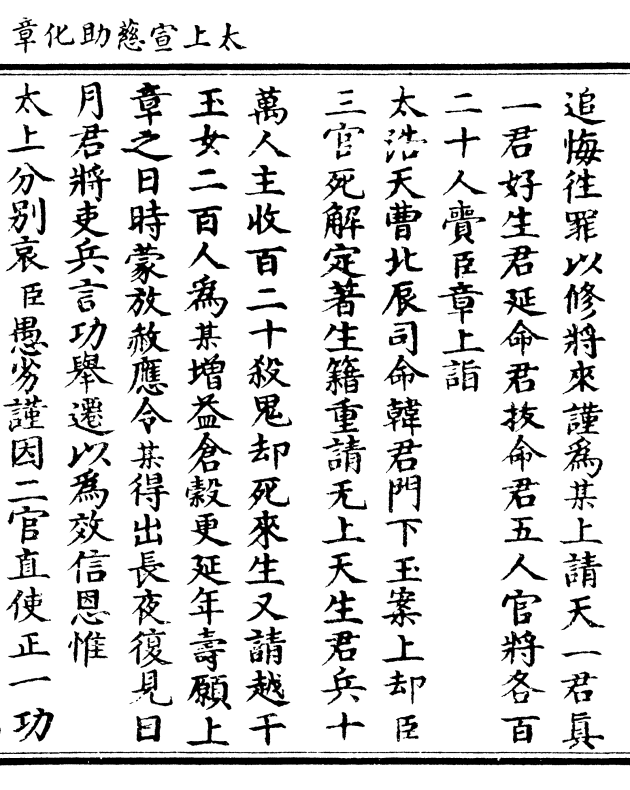 太上宣慈助化章
追悔徃罪以修將來謹為某上請天一君真
一君好生君延命君拔命君五人官將各百
二十人賷臣章上詣
太浩天曹北辰司命韓君門下玉案上却臣
三官死解定著生籍重請无上天生君兵十
萬人主收百二十殺鬼却死來生又請越千
玉女二百人為某增益倉穀更延年壽願上
章之日時蒙放赦應令某得出長夜復見日
月君將吏兵言功舉遷以為效信恩惟
太上分別哀臣愚劣謹因二官直使正一功